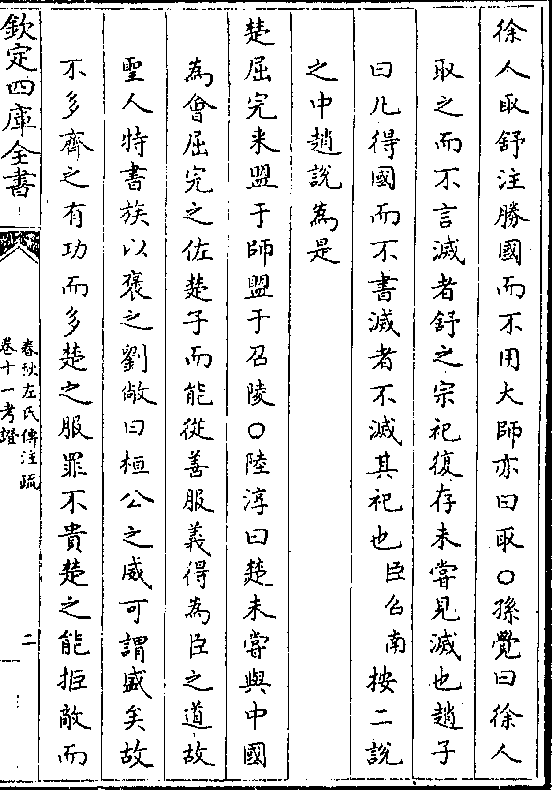 徐人取舒注勝國而不用大師亦曰取○孫覺曰徐人
取之而不言滅者舒之宗祀復存未嘗見滅也趙子
曰凡得國而不書滅者不滅其祀也臣召南按二說
之中趙說為是
楚屈完来盟于師盟于召陵○陸淳曰楚未嘗與中國
為會屈完之佐楚子而能從善服義得為臣之道故
聖人特書族以褒之劉敞曰桓公之威可謂盛矣故
不多齊之有功而多楚之服罪不貴楚之能拒敵而
欽定四庫全書
春秋左氏傳注疏
卷十一考證
二